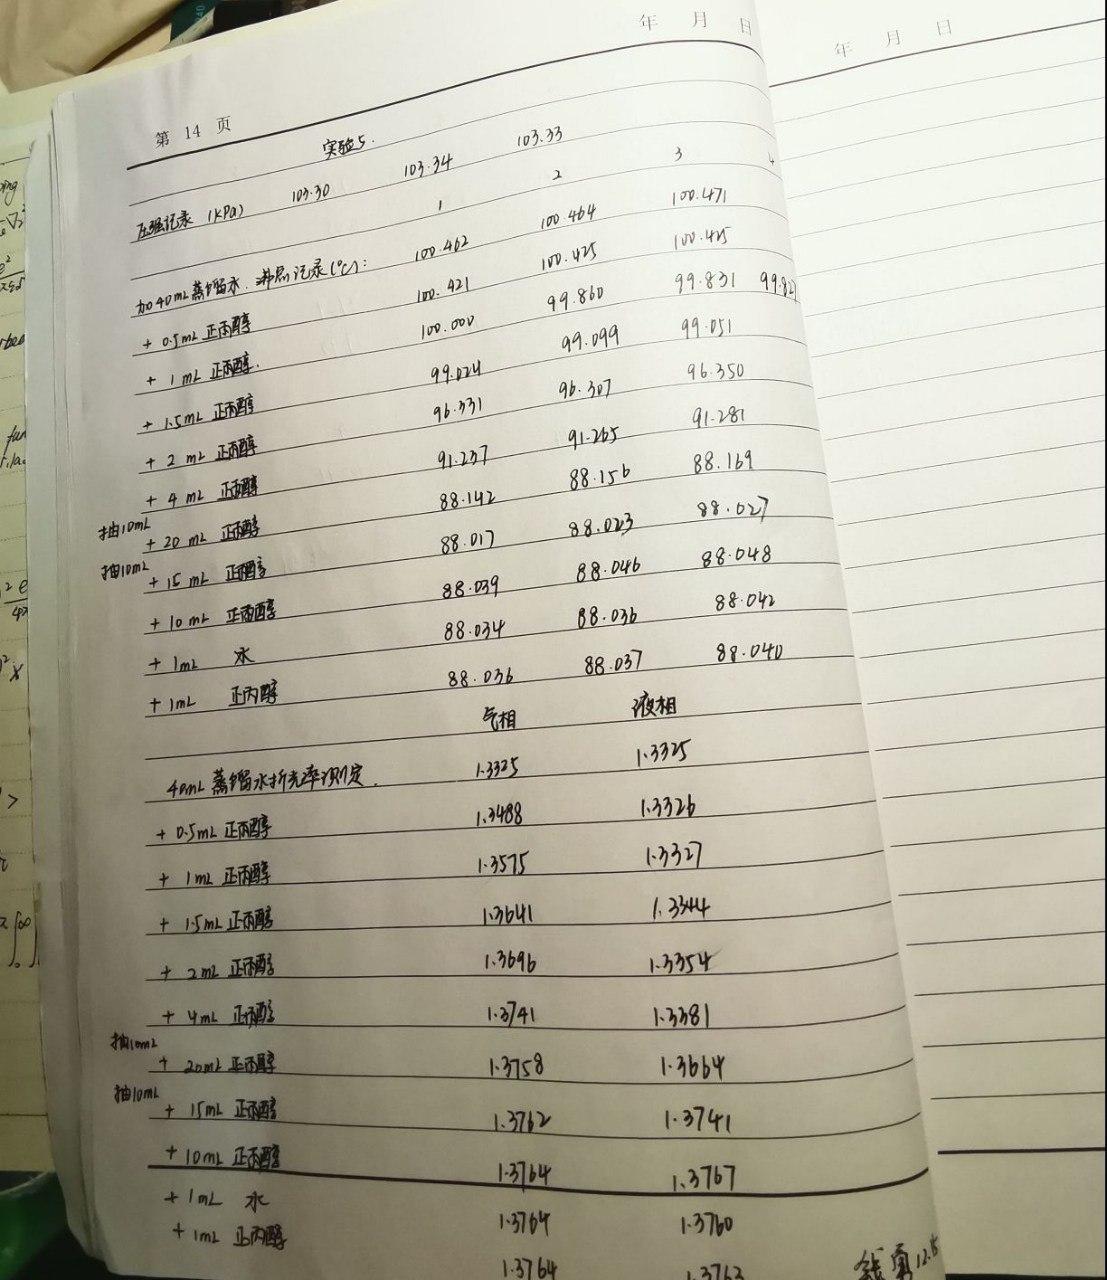 年 月 日
年 月 日
第 14 页
实验5.
压强记录 (kPa) 103.30 103.34 103.33
1 2 3 4
加40mL蒸馏水.沸点记录(℃): 100.462 100.464 100.471
+ 0.5mL 正丙醇 100.421 100.425 100.425
+ 1 mL 正丙醇. 100.000 99.860 99.831 99.821
+ 1.5mL 正丙醇 99.024 99.099 99.051
+ 2 mL 正丙醇 96.331 96.307 96.350
+ 4 mL 正丙醇 91.237 91.265 91.281
抽10mL + 20 mL 正丙醇 88.142 88.156 88.169
抽10mL + 15 mL 正丙醇 88.017 88.023 88.027
+ 10 mL 正丙醇 88.039 88.046 88.048
+ 1mL 水 88.034 88.036 88.042
+ 1mL 正丙醇 88.036 88.037 88.040
气相 液相
40mL 蒸馏水折光率测定. 1.3325 1.3325
+ 0.5mL 正丙醇 1.3488 1.3326
+ 1mL 正丙醇 1.3575 1.3327
+ 1.5mL 正丙醇 1.3641 1.3344
+ 2mL 正丙醇 1.3696 1.3354
+ 4mL 正丙醇 1.3741 1.3381
抽10mL + 20mL 正丙醇 1.3758 1.3664
抽10mL + 15mL 正丙醇 1.3762 1.3741
+ 10mL 正丙醇 1.3764 1.3767
+ 1mL 水 1.3764 1.3760
+ 1mL 正丙醇 1.3764 1.3763